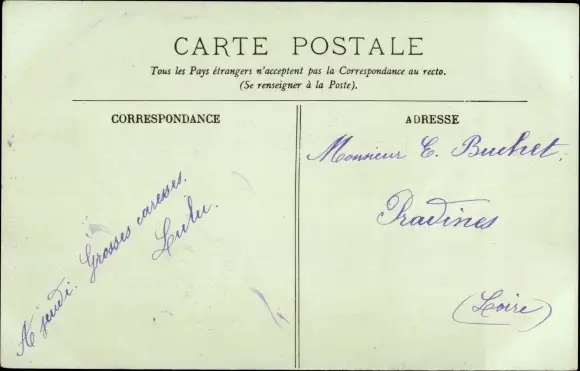 CARTE POSTALE
Tous les Pays étrangers n'acceptent pas la Correspondance au recto.
(Se renseigner à la Poste).
CORRESPONDANCE
A jeudi. Grosses caresses.
Lulu.
ADRESSE
Monsieur E. Buchet,
Pradines
(Loire)